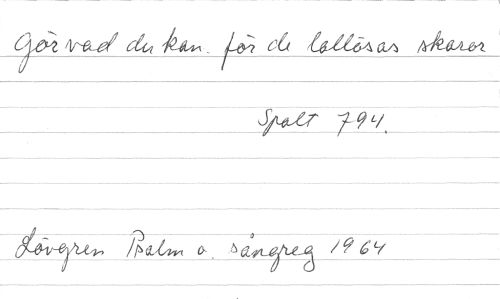 Gör vad du kan för de tallösas skaror
Spalt 794.
Lövgren Psalm o. sångreg 1964